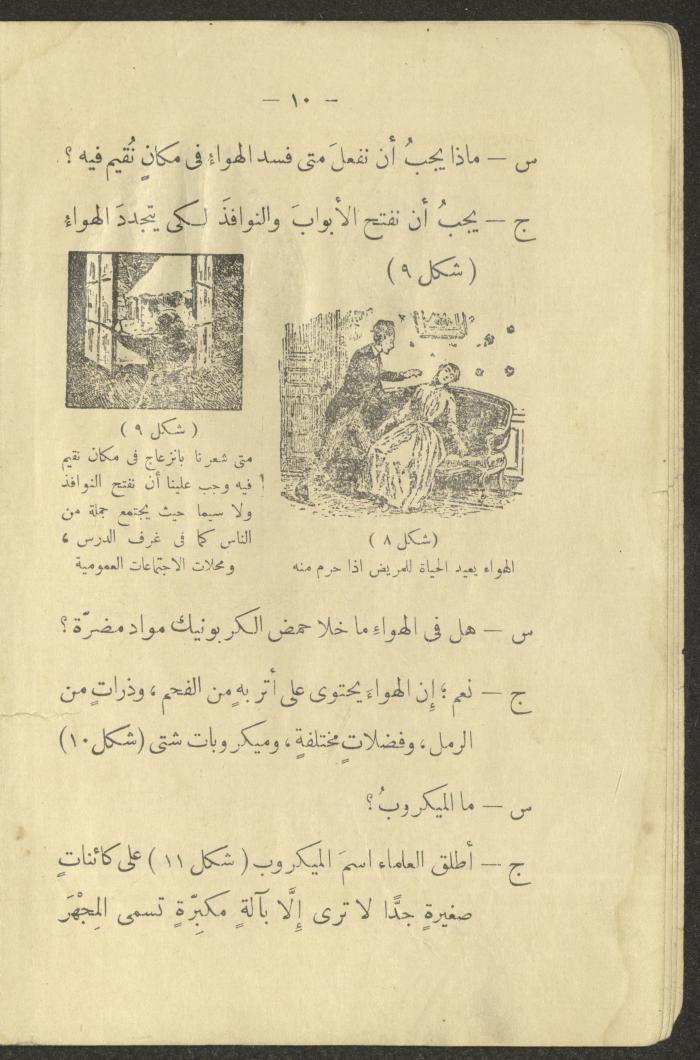 — ١٠ —
س — ماذا يجبُ أن نفعلَ متى فسد الهواءُ فى مكانٍ نُقيم فيه ؟
ج — يجبُ أن نفتح الأبوابَ والنوافذَ لكى يتجددَ الهواءُ
( شكل ٩ )
( شكل ٩ )
متى شعرنا بانزعاج فى مكان نقيم
فيه وجب علينا أن نفتح النوافذ
ولا سيما حيث يجتمع جملة من
الناس كما فى غرف الدرس ،
ومحلات الاجتماعات العمومية
( شكل ٨ )
الهواء يعيد الحياة للمريض اذا حرم منه
س — هل فى الهواءِ ما خلا حمض الكربونيك مواد مضرّة ؟
ج — نعم ؛ إن الهواءَ يحتوى على أتربهٍ من الفحم ، وذراتٍ من
الرمل ، وفضلاتٍ مختلفةٍ ، وميكروبات شتى ( شكل ١٠ )
س — ما الميكروبُ ؟
ج — أطلق العلماء اسمَ الميكروب ( شكل ١١ ) على كائناتٍ
صغيرةٍ جدًّا لا ترى إلَّا بآلةٍ مكبِّرّةٍ تسمى المِجْهَرَ